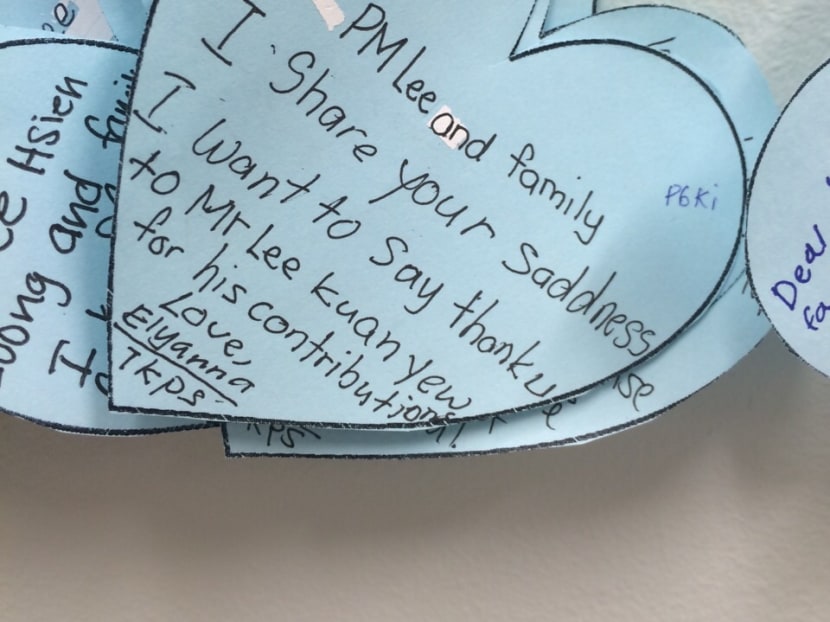 PM Lee and family
I Share your saddness
I want to say thank
to Mr Lee kuan yew
for his contributions!
Love,
Elyanna
TKPS
P6Ki
Hsien
oong and
Dear
fa